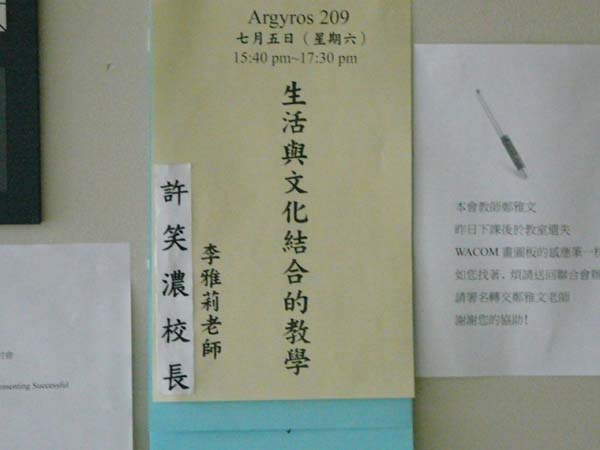 Argyros 209
七月五日（星期六）
15:40 pm~17:30 pm
生活與文化結合的教學
李雅莉老師
許笑濃校長
本會教師鄭雅文
昨日下課後於教室遺失
WACOM 畫圖板的感應筆一
如您找著，煩請送回聯合會辦
請署名轉交鄭雅文老師
謝謝您的協助！
Successful